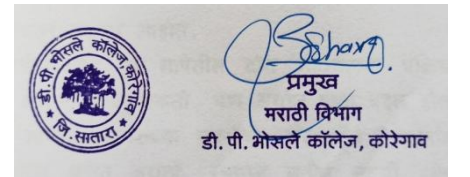 डी. पी. भोसले कॉलेज, कोरेगाव
जि. सातारा
प्रमुख
मराठी विभाग
डी. पी. भोसले कॉलेज, कोरेगाव